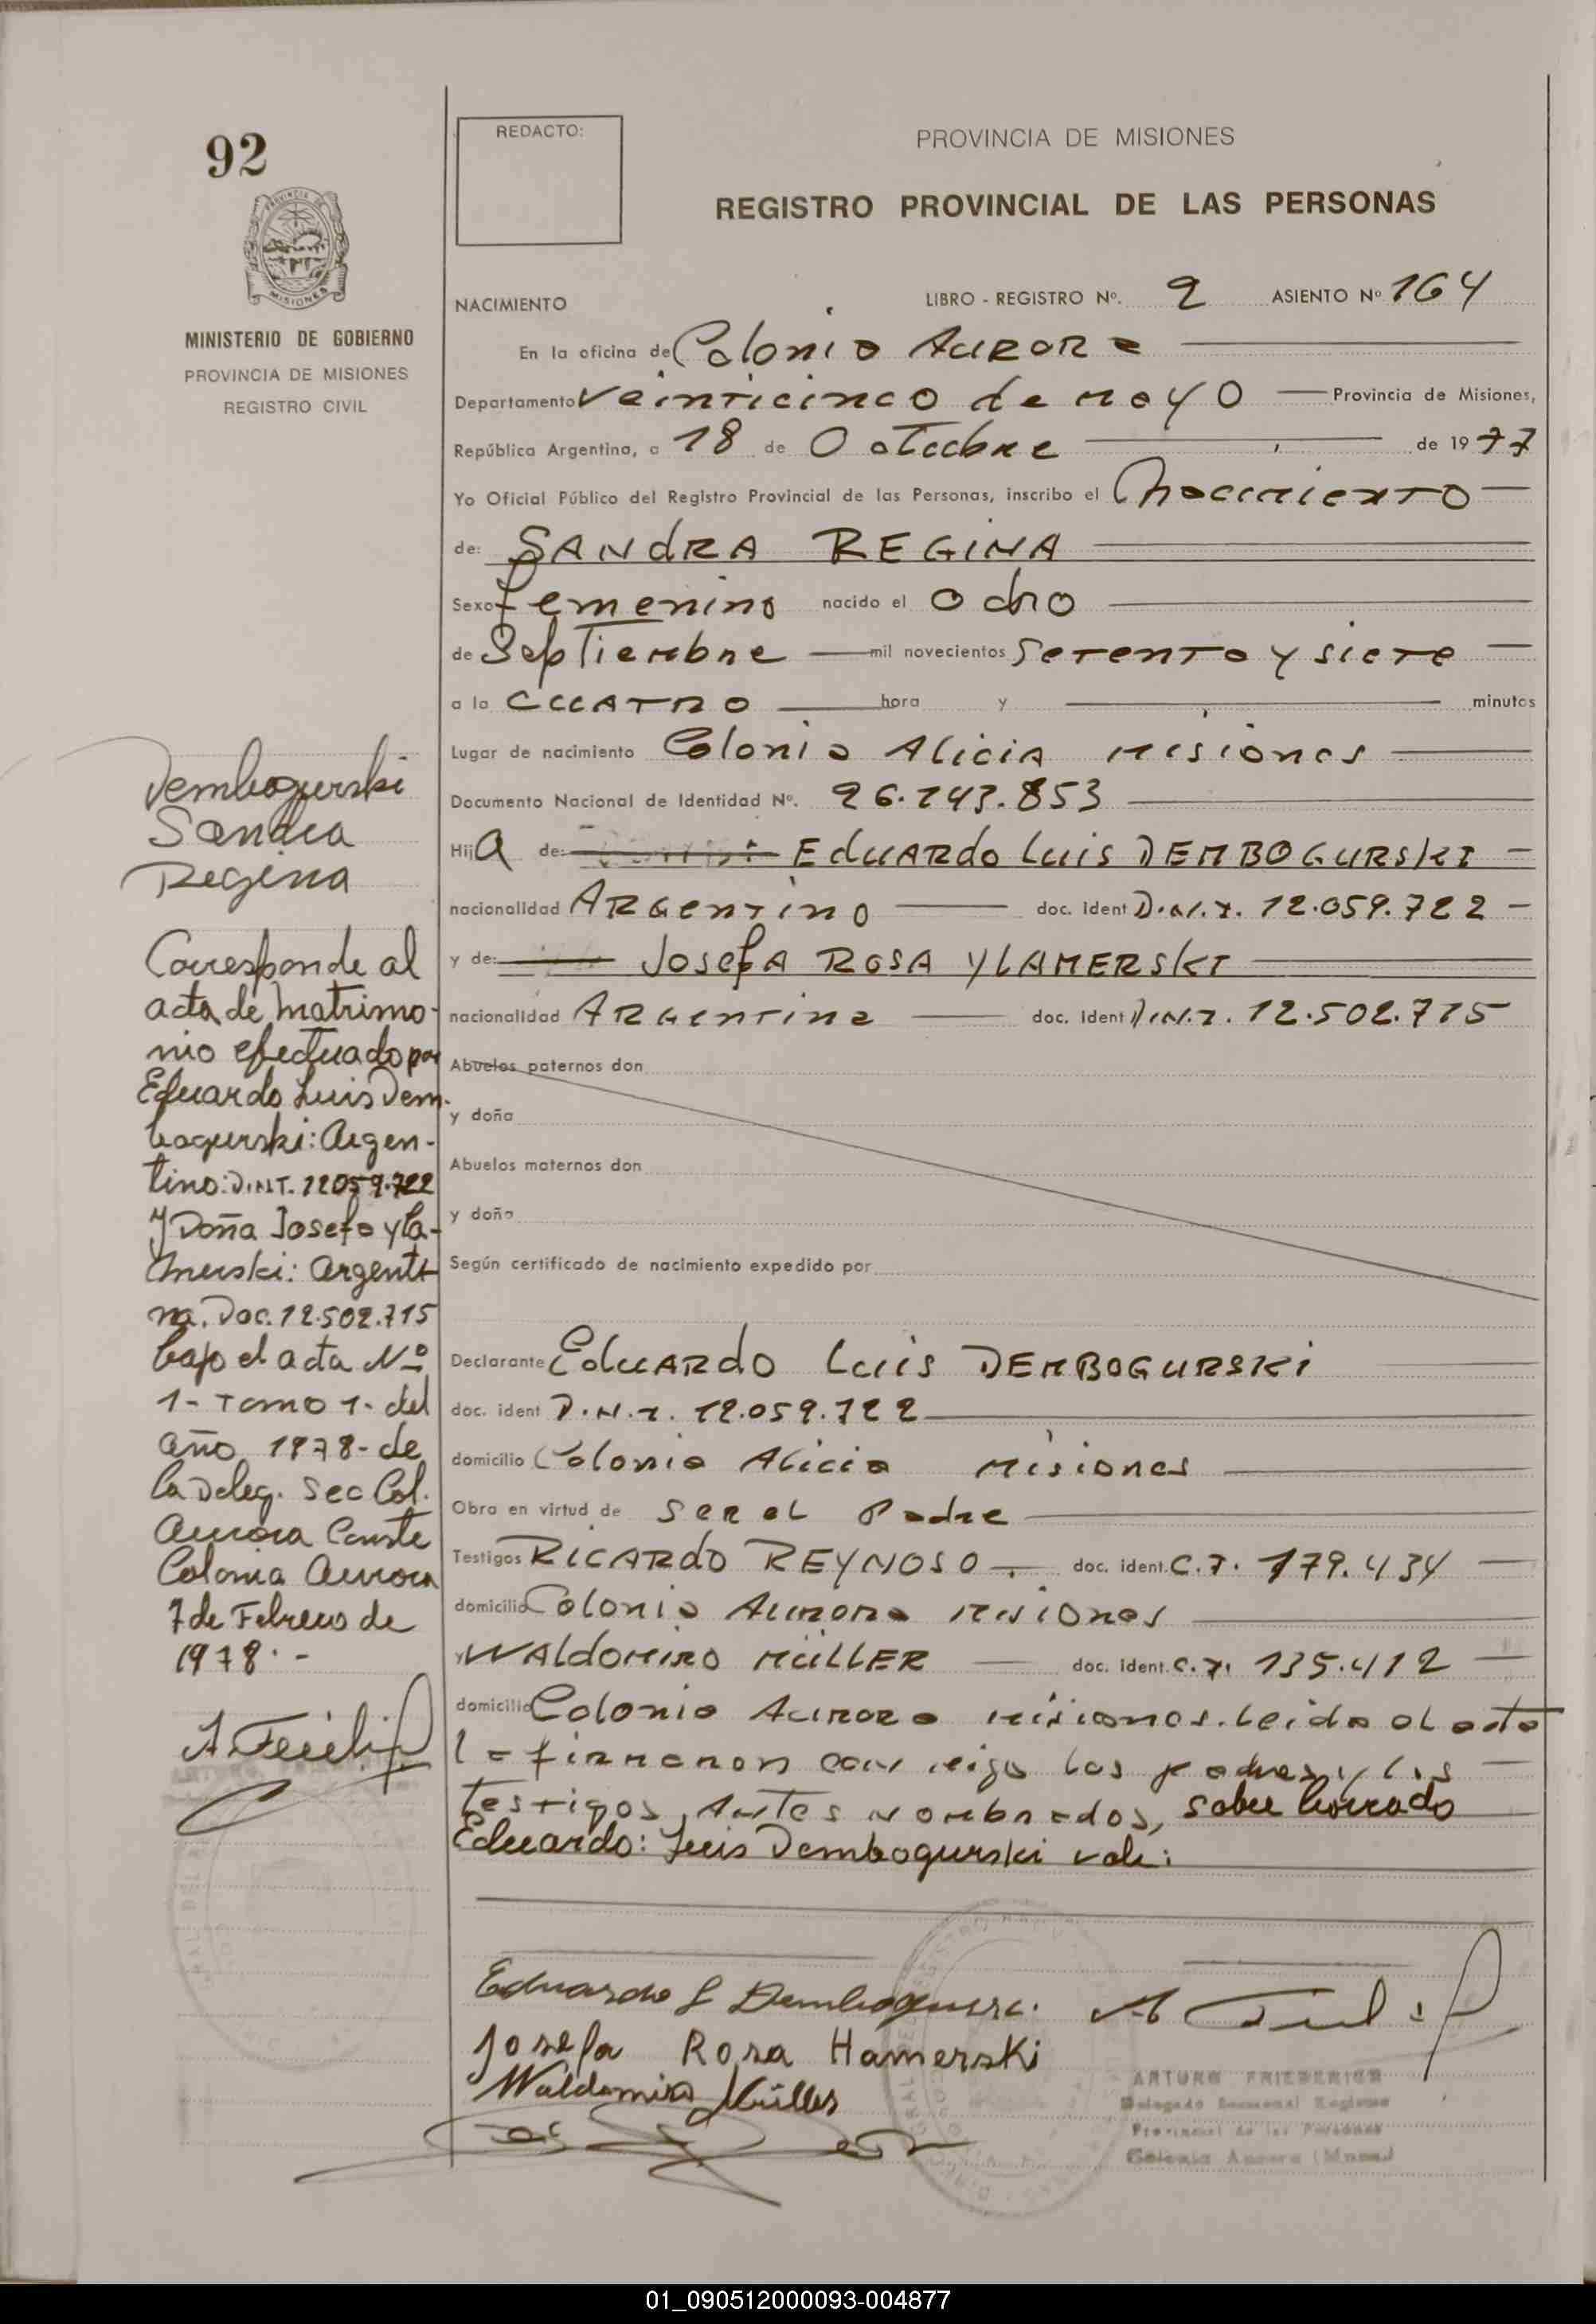 92
MINISTERIO DE GOBIERNO
PROVINCIA DE MISIONES
REGISTRO CIVIL
Dembogurski
Sandra
Regina
Corresponde al
acta de matrimo-
nio efectuado por
Eduardo Luis Dem-
bogurski: Argen-
tino: D.N.I. 12059.722
y Doña Josefa yla-
merski: argenti-
na. Doc. 12.502.715
bajo el acta Nº
1- Tomo 1. del
año 1978- de
la Deleg. Sec Col.
Aurora Conste
Colonia Aurora
7 de Febrero de
1978.-
REDACTO:
PROVINCIA DE MISIONES
REGISTRO PROVINCIAL DE LAS PERSONAS
NACIMIENTO LIBRO - REGISTRO Nº. 2 ASIENTO Nº 164
En la oficina de Colonia AURORA
Departamento Veinticinco de mayo Provincia de Misiones,
República Argentina, a 18 de Octubre de 1977
Yo Oficial Público del Registro Provincial de las Personas, inscribo el Nacimiento
de: SANdRA REGINA
Sexo femenino nacido el Ocho
de Septiembre mil novecientos Setenta y siete
a la CUATRO hora y minutos
Lugar de nacimiento Colonia Alicia Misiones
Documento Nacional de Identidad Nº. 26.243.853
Hija de: EduARdo Luis DEMBOGURSKI
nacionalidad ARgentino doc. ident D.N.I. 12.059.722
y de: JosefA ROSA YLAMERSKI
nacionalidad ARgentina doc. ident D.N.I. 12.502.715
Abuelos paternos don
y doña
Abuelos maternos don
y doña
Según certificado de nacimiento expedido por
Declarante EduARdo Luis DEMBOGURSKi
doc. ident D.N.I. 12.059.722
domicilio Colonia Alicia Misiones
Obra en virtud de SER el Padre
Testigos RICARdO REYNOSO doc. ident. C.I. 179.434
domicilio Colonia Aurora Misiones
y WALdOMIRO MüLLER doc. ident. C.I. 135.412
domicilio Colonia Aurora Misiones. Leida el acta
la firmaron conmigo los padres y los
testigos Antes Nombrados, sobre borrado
Eduardo: Luis Dembogurski vale:
Eduardo L Dembogurski
Josefa Rosa Hamerski
Waldomiro Müller
ARTURO FRIEDERICH
Delegado Seccional Registro
Provincial de las Personas
Colonia Aurora (Mnes)
01_090512000093-004877